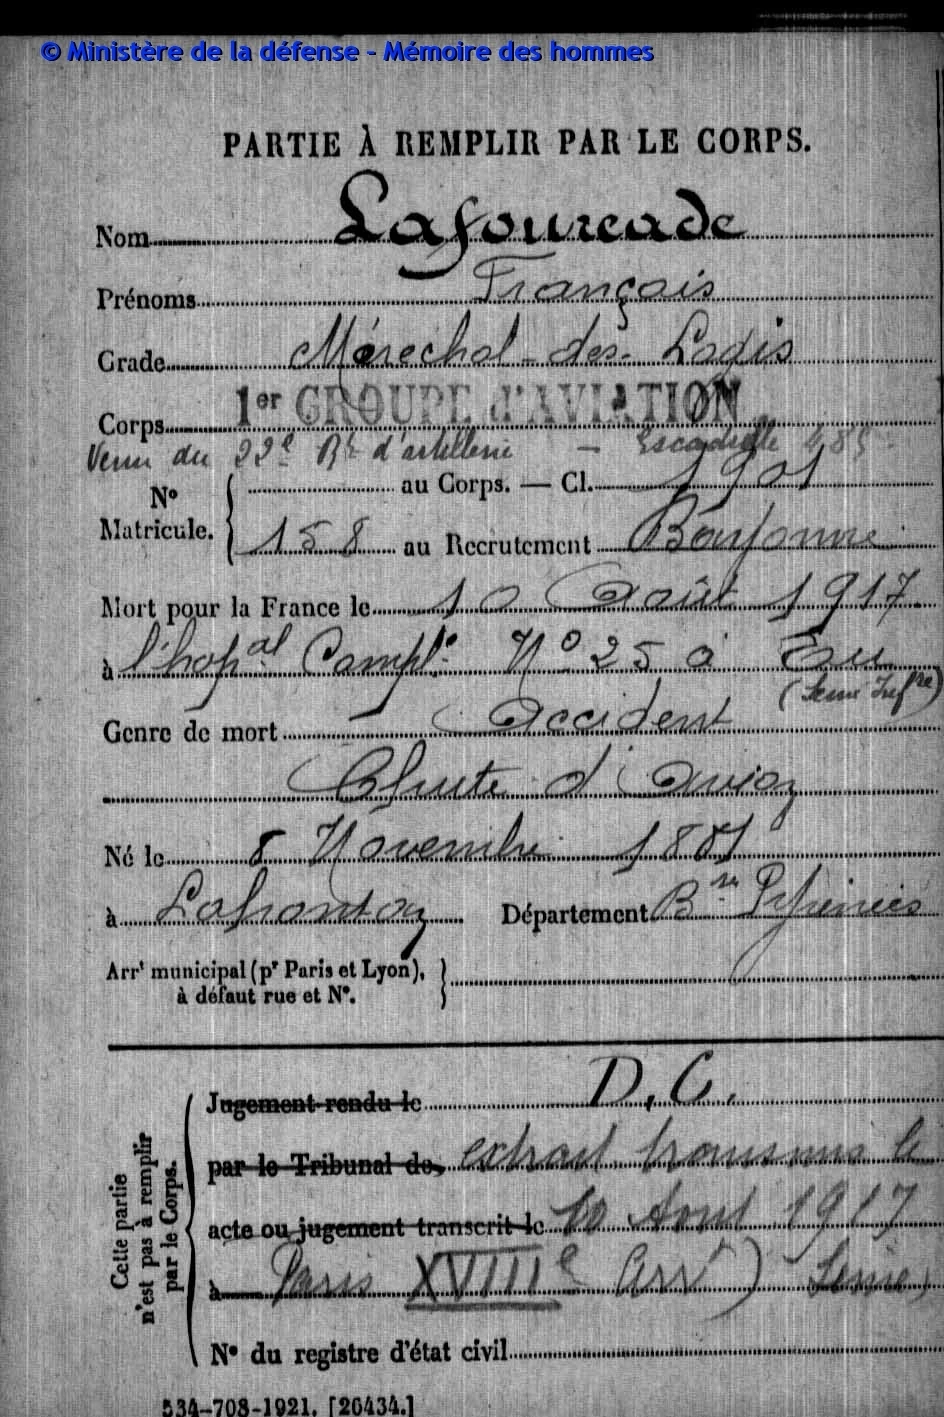 © Ministère de la défense - Mémoire des hommes
PARTIE À REMPLIR PAR LE CORPS.
Nom Lafourcade
Prénoms François
Grade Maréchal-des-Logis
Corps 1er GROUPE d'AVIATION
Venu du 22e Rt d'artillerie — Escadrille 485
au Corps. — Cl. 1901
N°
Matricule.
158 au Recrutement Bayonne
Mort pour la France le 10 Août 1917
à l'hopal Complre N° 25 à Eu
(Seine Infre)
Genre de mort Accident
Chute d'avion
Né le 8 Novembre 1881
à Lahontan Département Bses Pyrénées
Arrt municipal (pr Paris et Lyon),
à défaut rue et N°.
Cette partie
n'est pas à remplir
par le Corps.
Jugement rendu le D.C.
par le Tribunal de, extrait transmis le
acte ou jugement transcrit le 10 Aout 1917
à Paris XVIIIe Arrt) Seine)
N° du registre d'état civil
534-708-1921. [26434.]